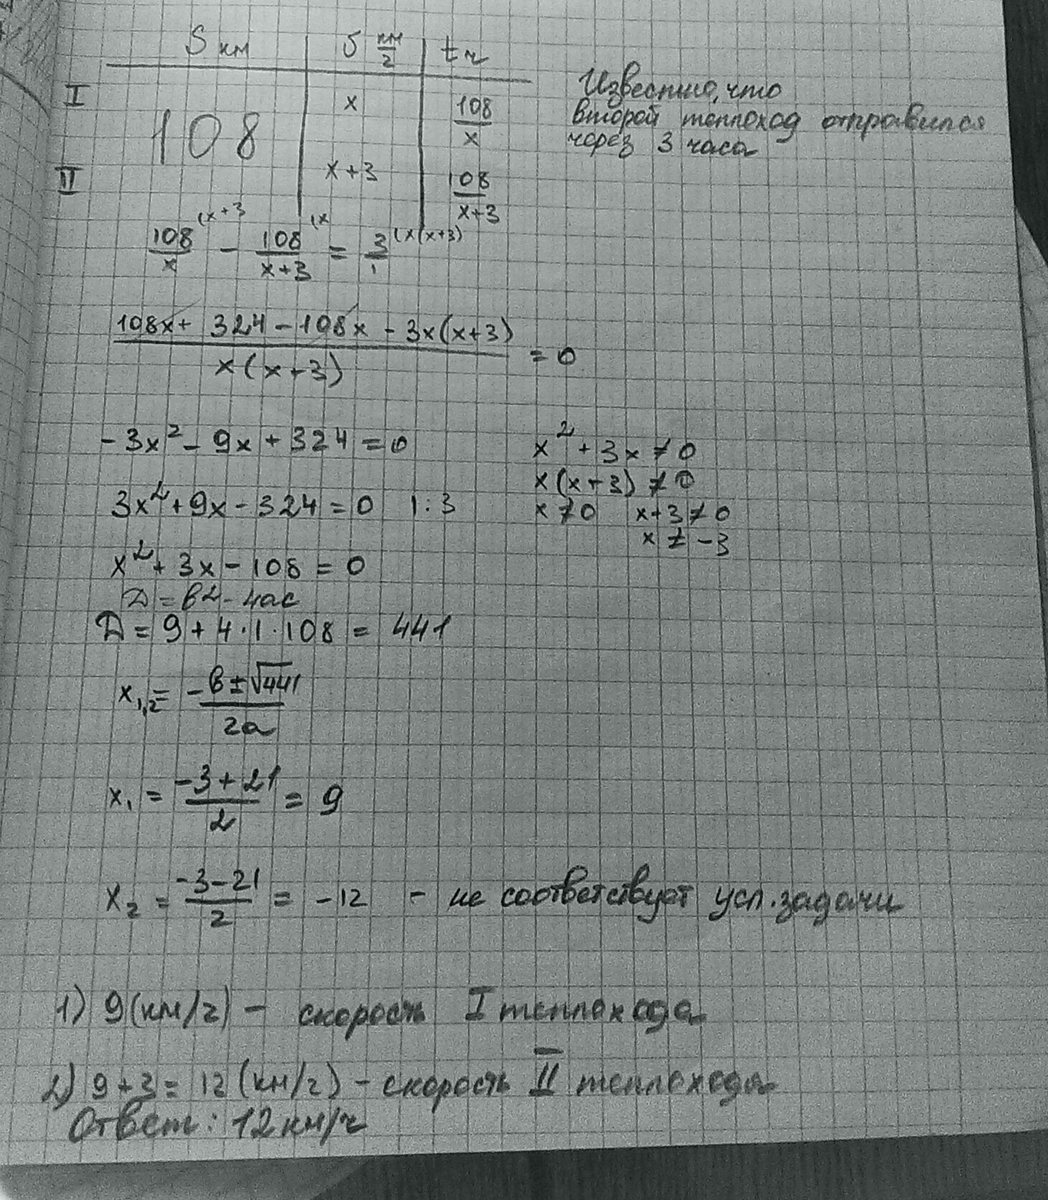 S км | υ км/ч | t ч
I | x | 108/x
Известно, что
второй теплоход отправился
через 3 часа
108
II | x+3 | 108/(x+3)
108/x (x+3 - 108/(x+3) (x = 3/1 (x(x+3)
(108x + 324 - 108x - 3x(x+3))/(x(x+3)) = 0
-3x² - 9x + 324 = 0
x² + 3x ≠ 0
x(x+3) ≠ 0
3x² + 9x - 324 = 0 |:3
x ≠ 0 x+3 ≠ 0
x ≠ -3
x² + 3x - 108 = 0
D = b² - 4ac
D = 9 + 4·1·108 = 441
x₁,₂ = (-b ± √441)/2a
x₁ = (-3+21)/2 = 9
x₂ = (-3-21)/2 = -12 - не соответствует усл. задачи
1) 9 (км/ч) - скорость I теплохода
2) 9+3 = 12 (км/ч) - скорость II теплохода
Ответ: 12 км/ч